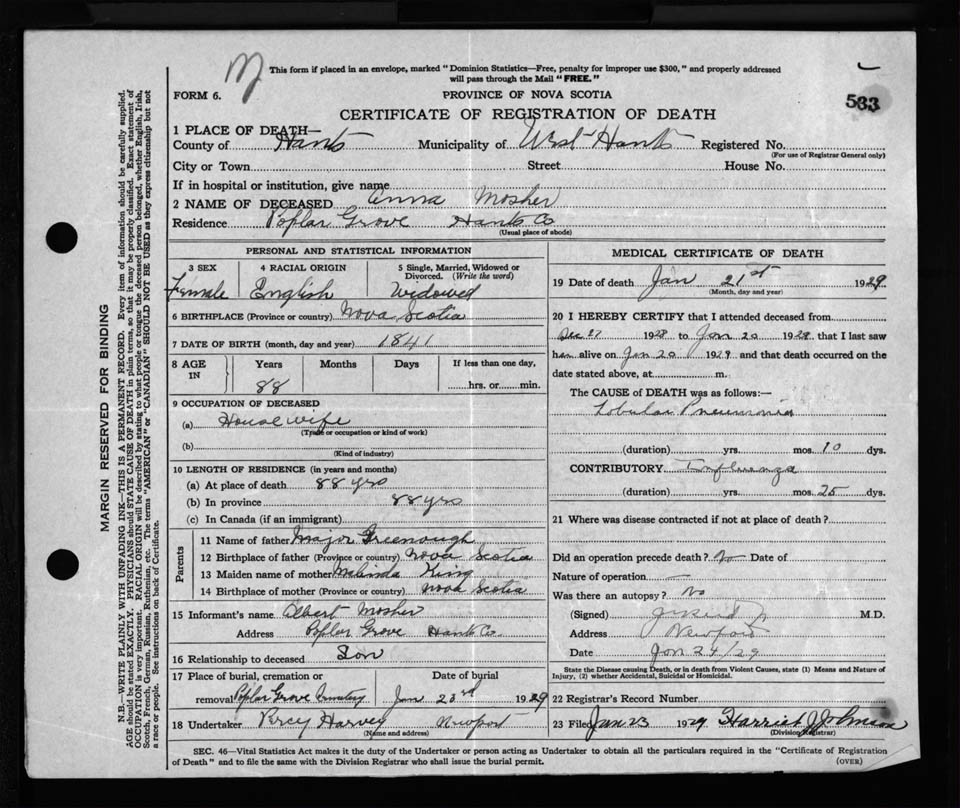 M
This form if placed in an envelope, marked "Dominion Statistics—Free, penalty for improper use $300," and properly addressed
will pass through the Mail "FREE."
FORM 6.
PROVINCE OF NOVA SCOTIA
533
CERTIFICATE OF REGISTRATION OF DEATH
1 PLACE OF DEATH—
County of Hants Municipality of West Hants Registered No.
(For use of Registrar General only)
City or Town Street House No.
If in hospital or institution, give name
2 NAME OF DECEASED Anna Mosher
Residence Poplar Grove Hants Co
(Usual place of abode)
PERSONAL AND STATISTICAL INFORMATION
3 SEX 4 RACIAL ORIGIN 5 Single, Married, Widowed or
Divorced. (Write the word)
Female English Widowed
6 BIRTHPLACE (Province or country) Nova Scotia
7 DATE OF BIRTH (month, day and year) 1841
8 AGE IN Years Months Days If less than one day,
88 hrs. or min.
9 OCCUPATION OF DECEASED
(a) House wife
(Trade or occupation or kind of work)
(b)
(Kind of industry)
10 LENGTH OF RESIDENCE (in years and months)
(a) At place of death 88 yrs
(b) In province 88 yrs
(c) In Canada (if an immigrant)
Parents
11 Name of father Major Greenough
12 Birthplace of father (Province or country) Nova Scotia
13 Maiden name of mother Malinda King
14 Birthplace of mother (Province or country) Nova Scotia
15 Informant's name Albert Mosher
Address Poplar Grove Hants Co
16 Relationship to deceased Son
17 Place of burial, cremation or Date of burial
removal Poplar Grove Cemetery Jan 23rd 1929
18 Undertaker Percy Harvey Newport
(Name and address)
MEDICAL CERTIFICATE OF DEATH
19 Date of death Jan 21st 1929
(Month, day and year)
20 I HEREBY CERTIFY that I attended deceased from
Dec 27 1928 to Jan 20 1929 that I last saw
her alive on Jan 20 1929 and that death occurred on the
date stated above, at m.
The CAUSE of DEATH was as follows:—
Lobular Pneumonia
(duration) yrs. mos. 10 dys.
CONTRIBUTORY Influenza
(duration) yrs. mos. 25 dys.
21 Where was disease contracted if not at place of death?
Did an operation precede death? No Date of
Nature of operation —
Was there an autopsy? No
(Signed) M.D.
Address Newport
Date Jan 24/29
State the Disease causing Death, or in death from Violent Causes, state (1) Means and Nature of
Injury, (2) whether Accidental, Suicidal or Homicidal.
22 Registrar's Record Number
23 Filed Jan 23 1929 Harriet J Johnson
(Division Registrar)
SEC. 46—Vital Statistics Act makes it the duty of the Undertaker or person acting as Undertaker to obtain all the particulars required in the "Certificate of Registration
of Death" and to file the same with the Division Registrar who shall issue the burial permit.
(OVER)
MARGIN RESERVED FOR BINDING
N.B.—WRITE PLAINLY WITH UNFADING INK—THIS IS A PERMANENT RECORD. Every item of information should be carefully supplied.
AGE should be stated EXACTLY. PHYSICIANS should STATE CAUSE OF DEATH in plain terms, so that it may be properly classified. Exact statement of
OCCUPATION is very important. RACIAL ORIGIN will be described by stating to what people or tongue the deceased person belonged, whether English, Irish,
Scotch, French, German, Russian, Ruthenian, etc. The terms "AMERICAN" or "CANADIAN" SHOULD NOT BE USED as they express citizenship but not
a race or people. See instructions on back of Certificate.